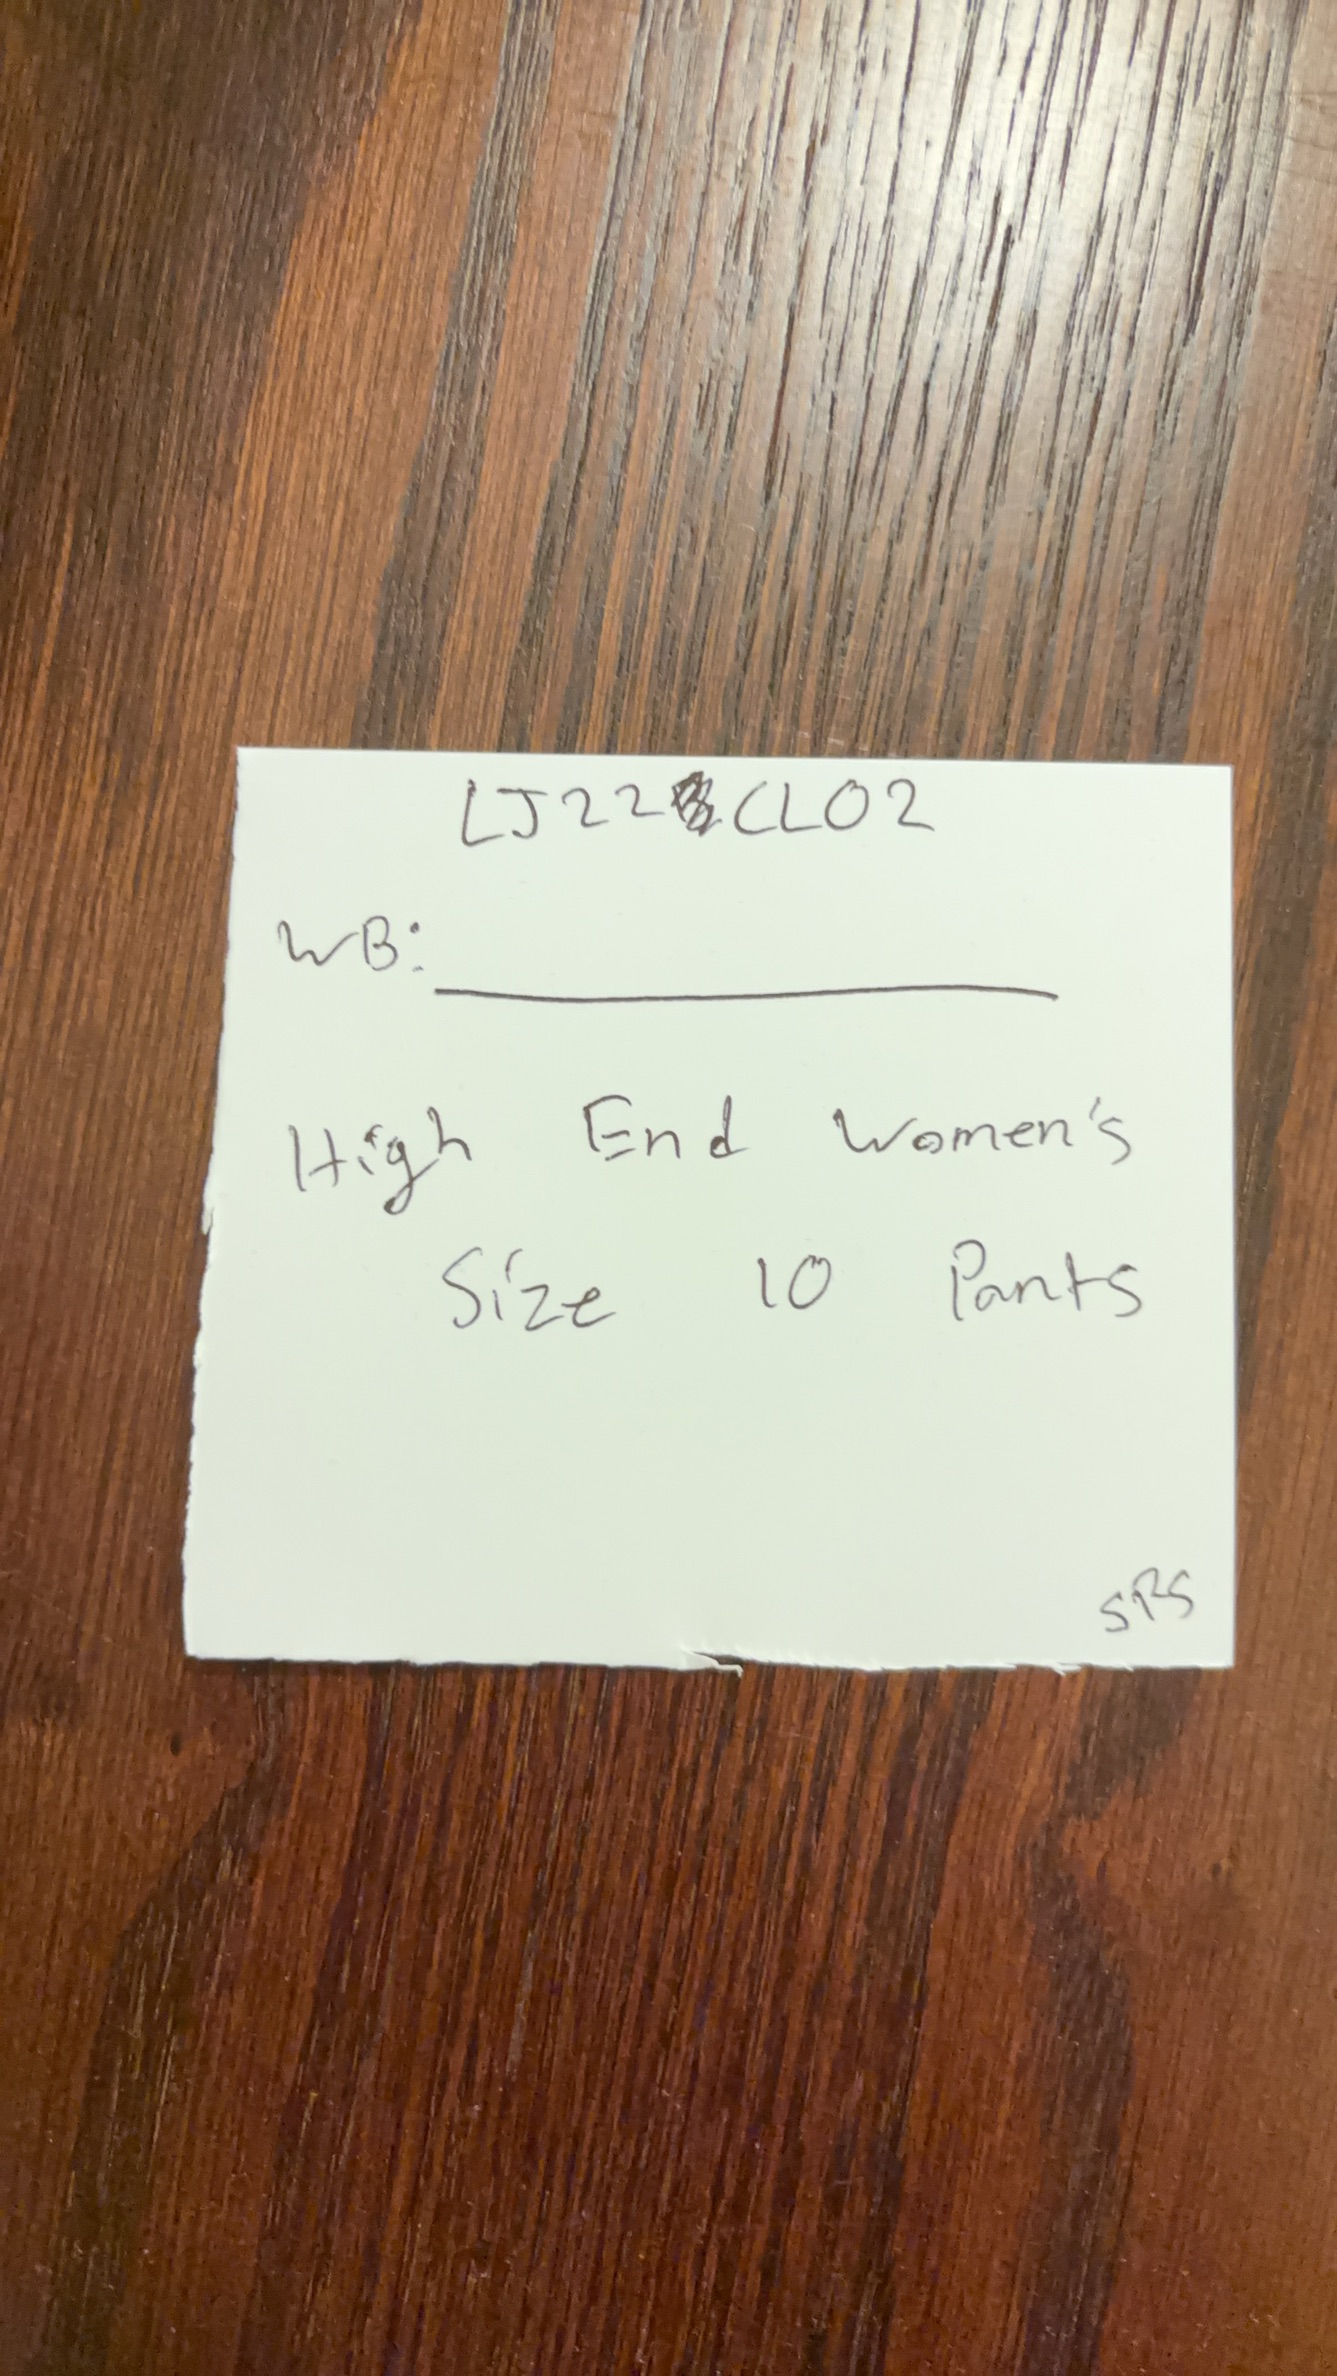 LJ22CL02
WB:
High End Women's
Size 10 Pants
SRS